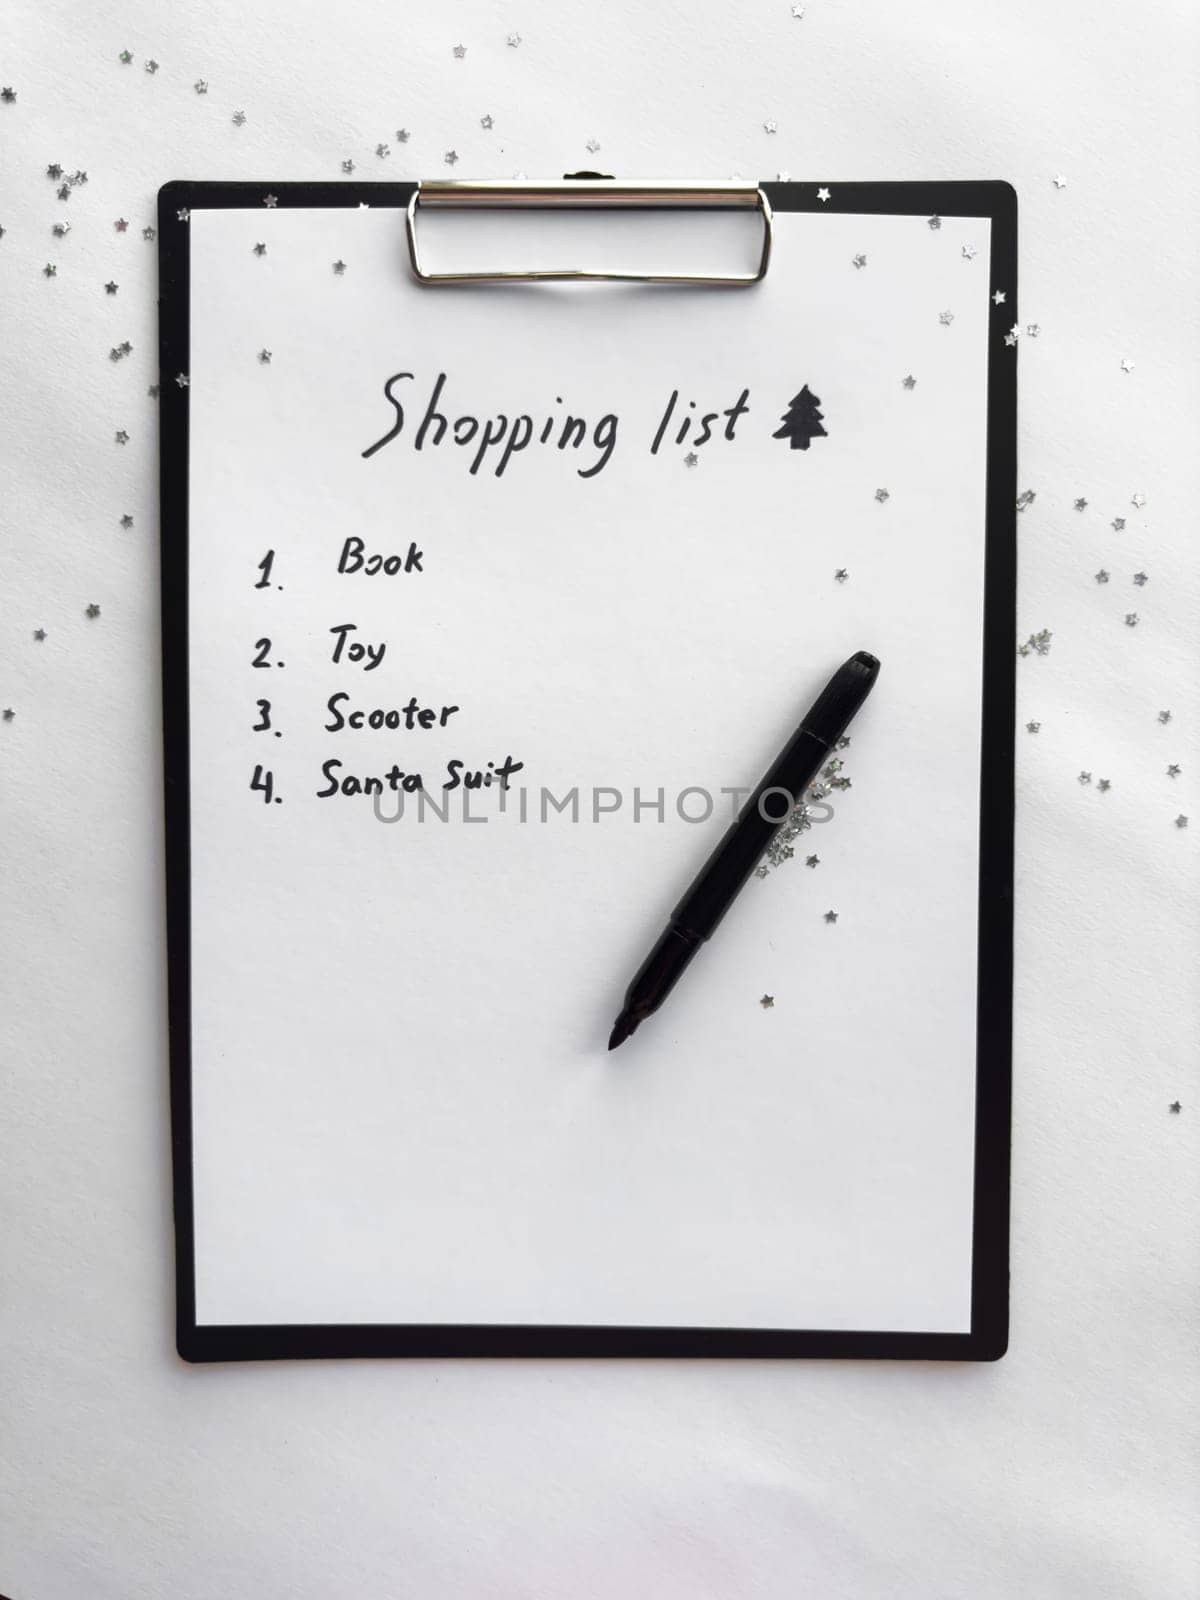 Shopping list
1. Book
2. Toy
3. Scooter
4. Santa Suit
UNLIMPHOTOS